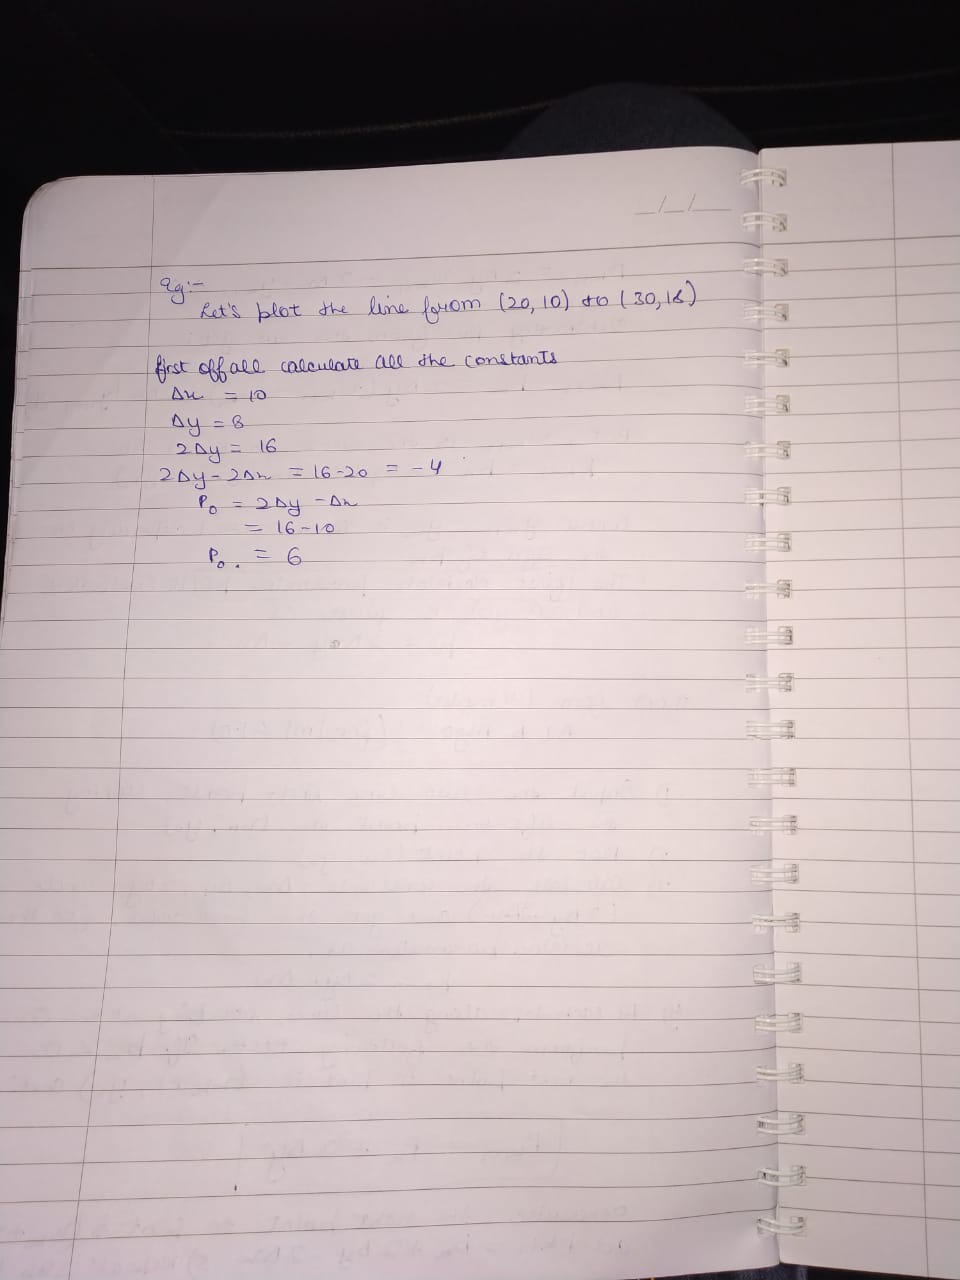 eg:-
Let's plot the line from (20,10) to (30,18)
first offall calculate all the constants
Δx = 10
Δy = 8
2Δy = 16
2Δy - 2Δx = 16-20 = -4
P₀ = 2Δy - Δx
= 16-10
P₀. = 6